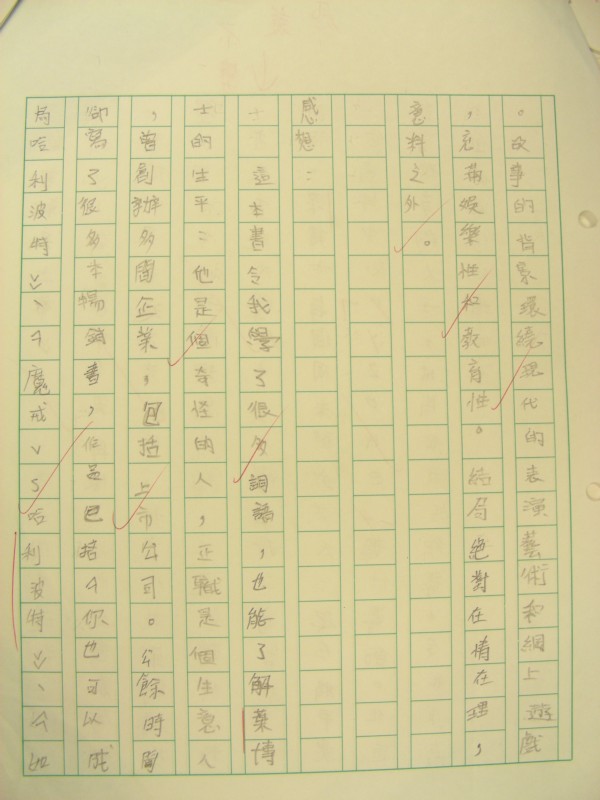 。故事的背景環繞現代的表演藝術和網上遊戲
，充滿娛樂性和教育性。結局絕對在情在理，
意料之外。
感想：
這本書令我學了很多詞語，也能了解葉博
士的生平：他是個奇怪的人，正職是個生意人
，曾創辦多間企業，包括上市公司。公餘時間
卻寫了很多本暢銷書，但是包括<你也可以成
為哈利波特》、<魔戒>S哈利波特》、<如